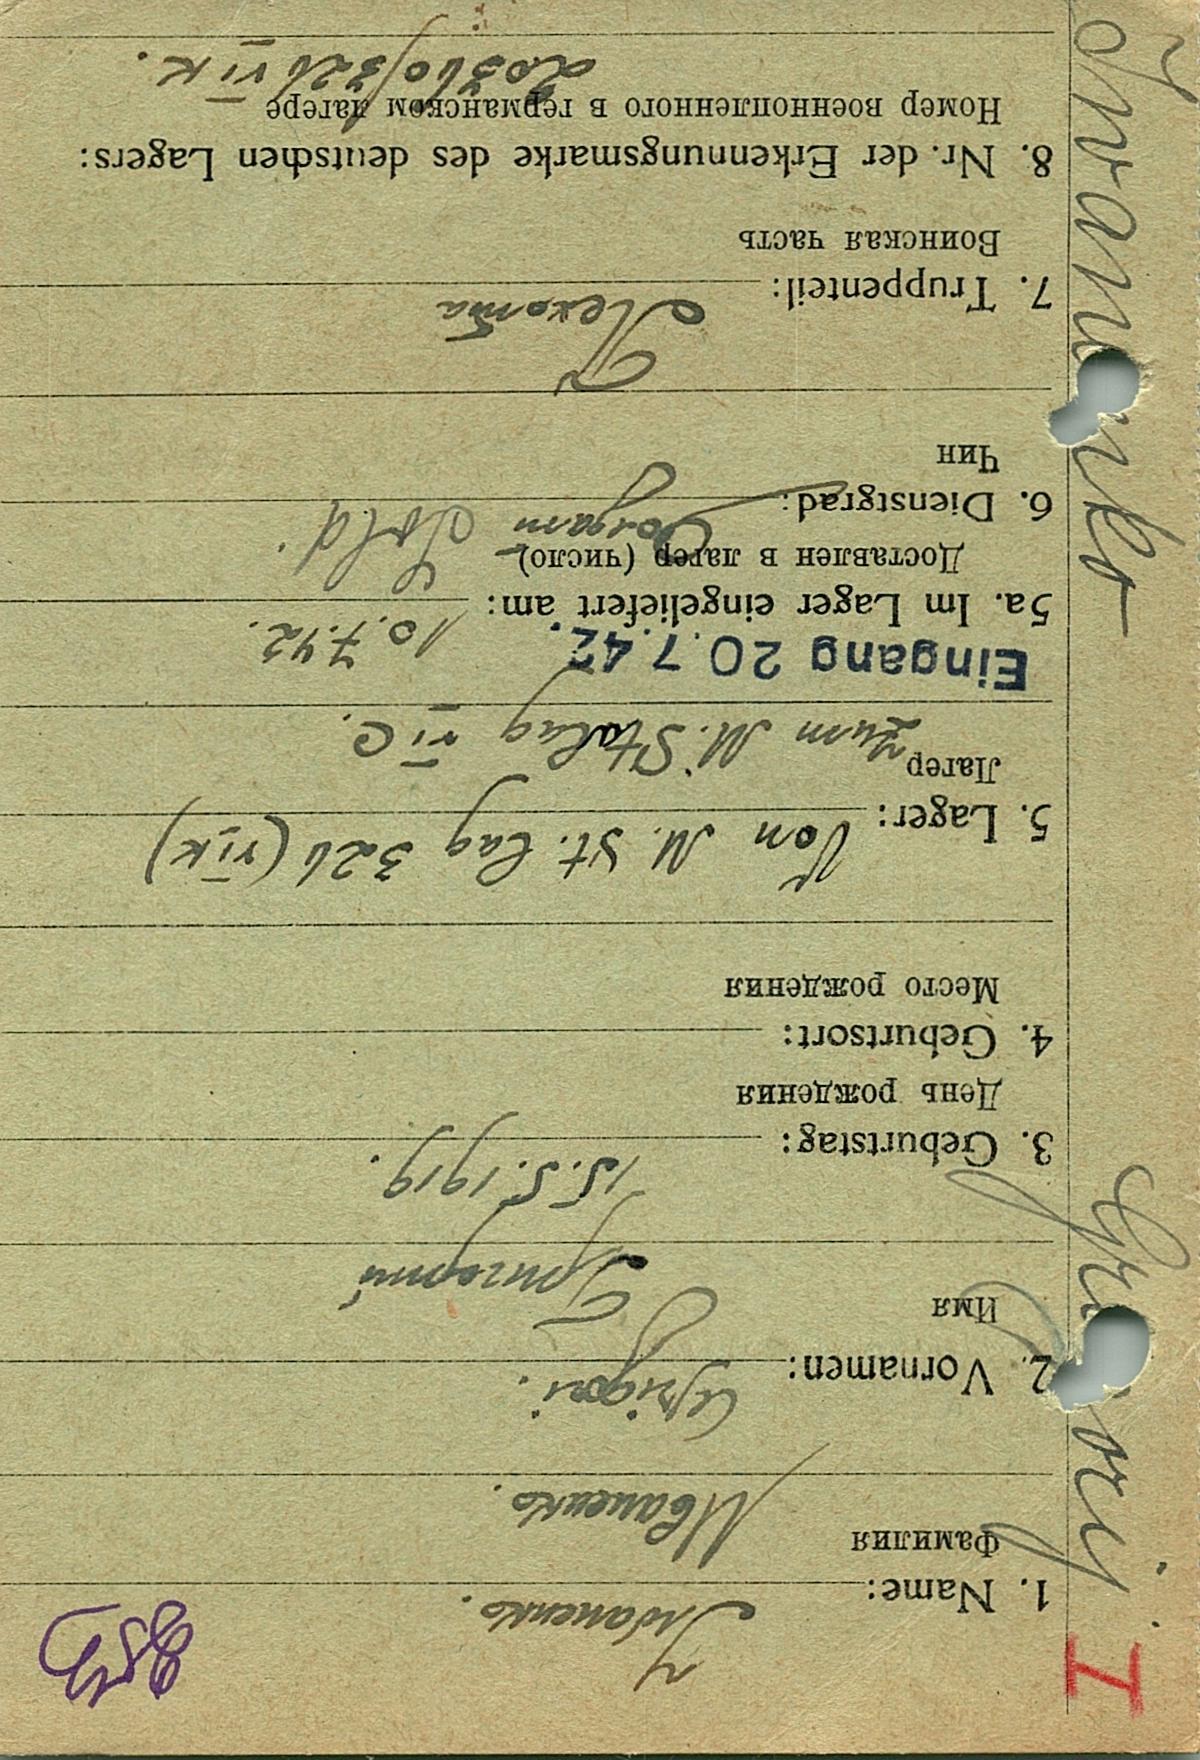 I
Iwanenko
Grigorij
1. Name: Iwanenko.
Фамилия
Иваненко.
2. Vornamen: Grigori.
Имя
Григорий
3. Geburtstag: 15.5.1919.
День рождения
4. Geburtsort:
Место рождения
5. Lager: Von M. St. lag 326 (VI K)
Лагер
zum M. Stalag VI C.
Eingang 20.7.42.
5a. Im Lager eingeliefert am: 10.7.42.
Доставлен в лагер (число)
6. Dienstgrad: Sold.
Чин
7. Truppenteil:
Пехота
Воинская часть
8. Nr. der Erkennungsmarke des deutschen Lagers:
Номер военнопленного в германском лагере
20360/326 VI K.